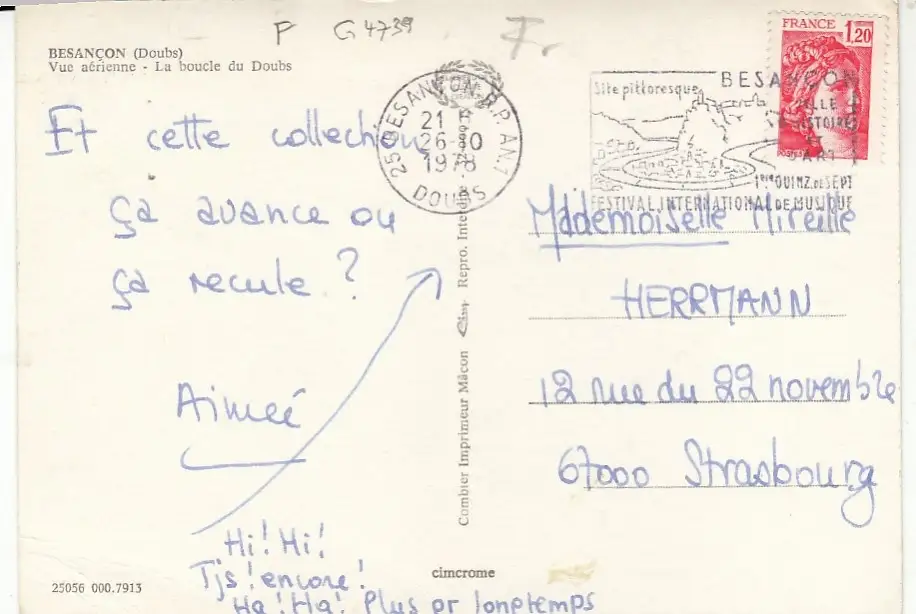 F G 4739 Fr
BESANÇON (Doubs)
Vue aérienne - La boucle du Doubs
Et cette collection
ça avance ou
ça recule ?
Aimeé
Hi! Hi!
Tjs! encore!
Ha! Ha! Plus pr longtemps
25056 000.7913
cimcrome
Combier Imprimeur Mâcon Repro. Interdite
25 BESANÇON R.P. AN.1
21 H
26-10
1978
DOUBS
Site pittoresque
BESANÇON
VILLE
D'HISTOIRE
ET
ART
1ère QUINZ. DE SEPT
FESTIVAL INTERNATIONAL DE MUSIQUE
FRANCE 1,20
POSTES
Mademoiselle Mireille
HERRMANN
12 rue du 22 novembre
67000 Strasbourg